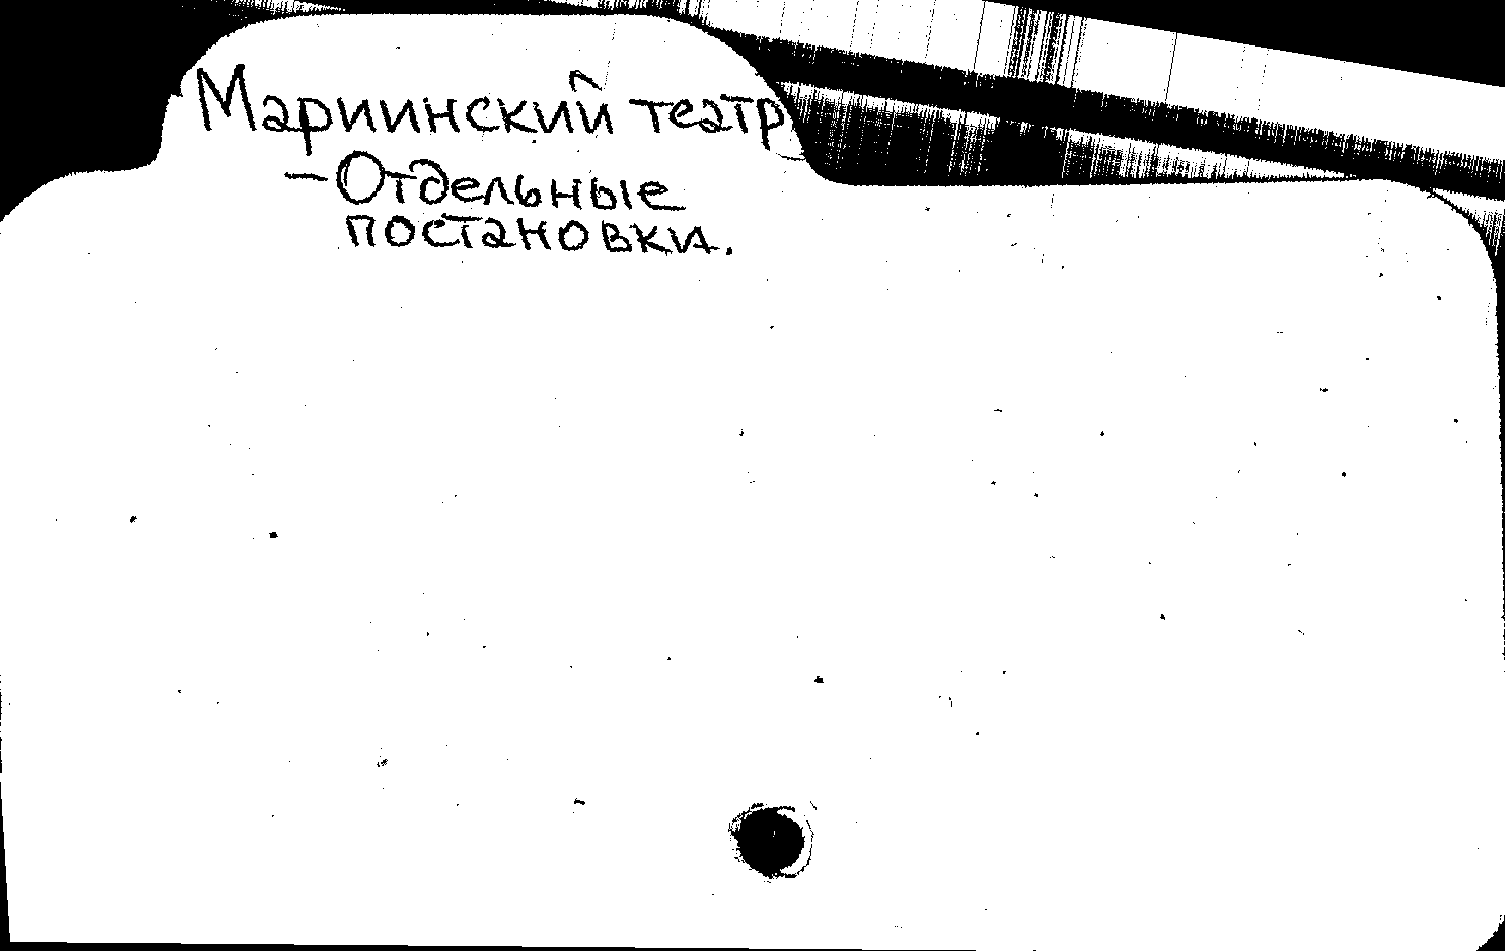 Мариинский театр
– Отдельные
постановки.